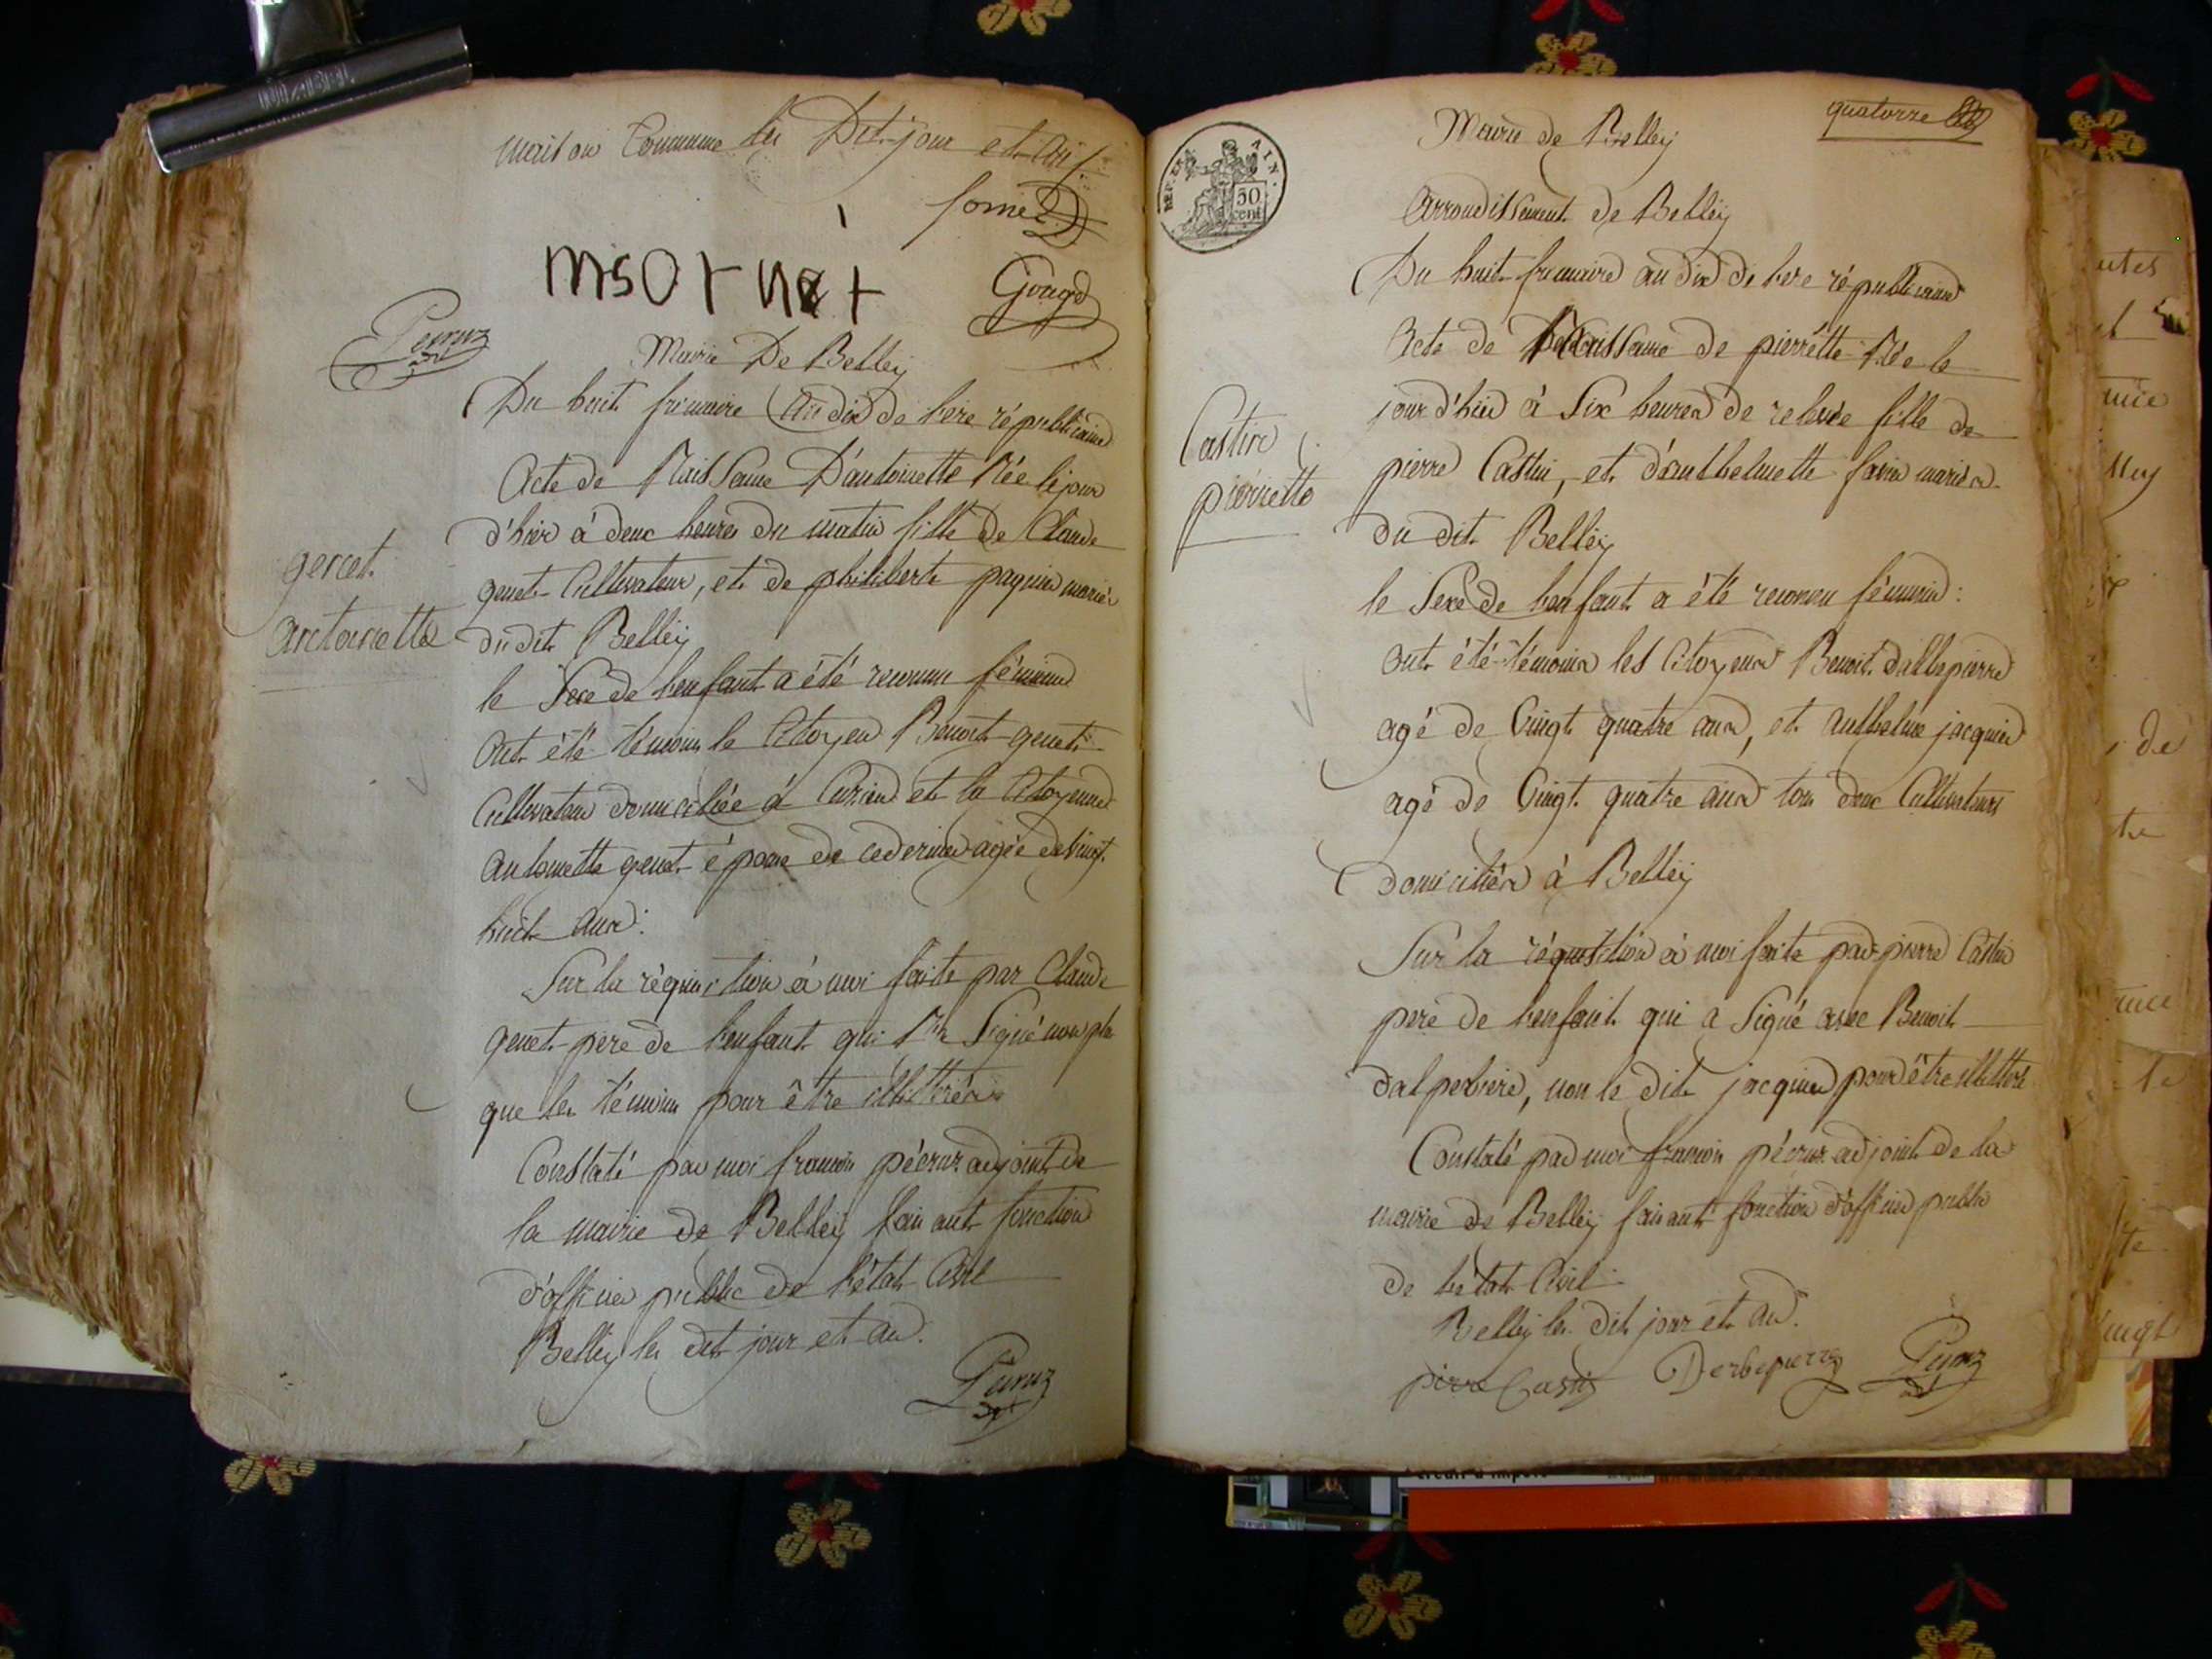 maison Commune les Dit jour et an
Gouge
Peruz
Mairie De Belleÿ
Du huit frimaire an dix de l'ere républicaine
Acte de Naissance D'antoinette Née le jour
d'hier à deux heures du matin fille de Claude
genet Cultivateur, et de philiberte paquin mariés
du dit Belleÿ
gercet
antoinette
le Sexe de l'enfant a été reconnu féminin
Ont été témoins le Citoyen Benoit genet
Cultivateur domiciliée à et la Citoyenne
antoinette genet épouse de ce dernier agée de vingt
huit ans:
Sur la réquisition à moi faite par Claude
genet pere de l'enfant qui N'a Signé non plus
que les témoins pour être illittérés
Constaté par moi francois péeruz adjoint de
la mairie de Belleÿ faisant fonction
d'officier public de l'état Civil
Belleÿ les dit jour et an.
Peruz
quatorze
REP. FRA AIN.
50
cent
Mairie de Belleÿ
Arrondissement de Belleÿ
Du huit frimaire an dix de l'ere républicaine
Acte de Naissance de pierrette Née le
jour d'hier à Six heures de relevée fille de
pierre Castin, et d'anthelmette favin mariés
du dit Belleÿ
Castin
pierrette
le Sexe de l'enfant a été reconnu féminin:
Ont été témoins les Citoyens Benoit dalbepierre
agé de Vingt quatre ans, et anthelme jacquin
agé de Vingt quatre ans tous deux Cultivateurs
domiciliés à Belleÿ
Sur la réquisition à moi faite par pierre Castin
pere de l'enfant qui a Signé avec Benoit
dalpebiere, non le dit jacquin pour être illittéré
Constaté par moi francois péeruz adjoint de la
mairie de Belleÿ faisant fonction d'officier public
de l'état Civil
Belleÿ les dit jour et an.
pierre Castin Derbepierre Peruz